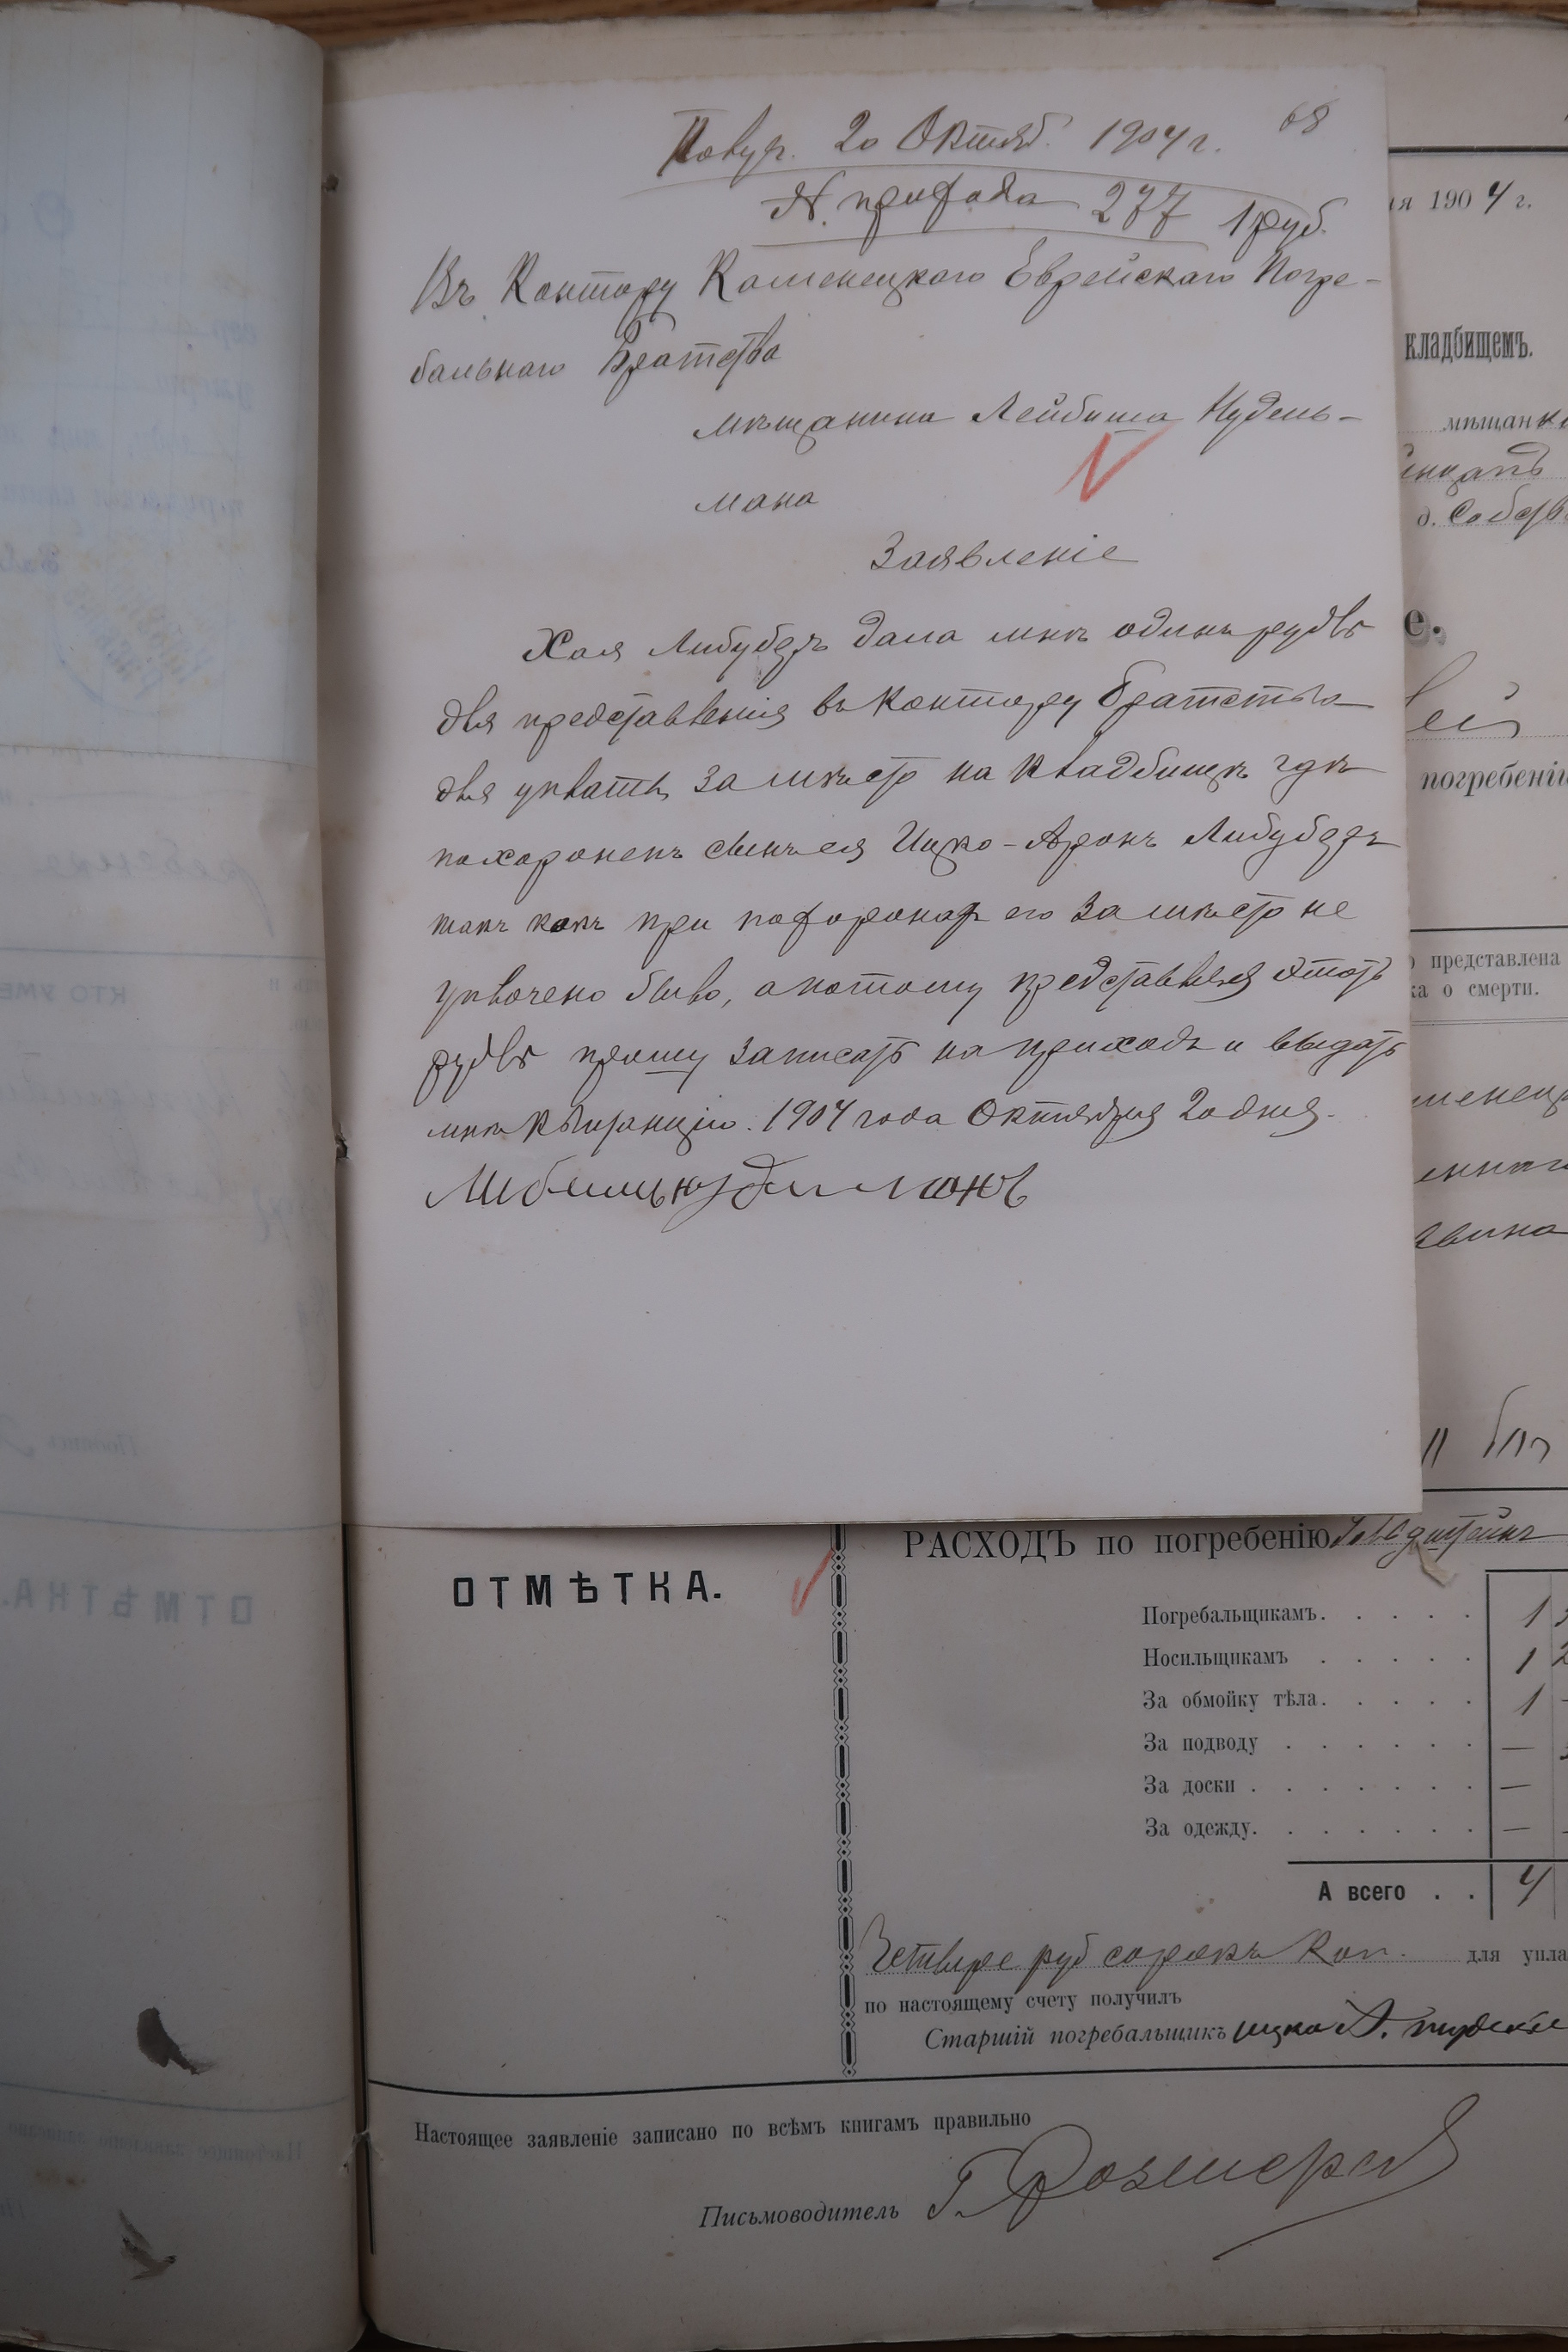 68
Получ. 20 Октяб. 1904 г.
N. прихода 277 1 руб.
Въ Контору Каменецкаго Еврейскаго Погре-
бальнаго Братства
мѣщанина Лейбиша Нудель-
мана
Заявленіе
Хая дала мнѣ одинъ рубль
для представленія въ Контору братства
для уплаты за мѣсто на кладбищѣ гдѣ
похороненъ сынъ ея Ицко-Аронъ
такъ какъ при похоронах его за мѣсто не
уплочено было, а потому представляя этотъ
рубль прошу записать на приходъ и выдать
мнѣ квитанцію. 1904 года Октября 20 дня.
1904 г.
кладбищемъ.
мѣщанк
д.
е.
ей
погребені
представлена
ка о смерти.
ОТМѢТКА.
РАСХОДЪ по погребенію
Погребальщикамъ. 1
Носильщикамъ 1 2
За обмойку тѣла. 1
За подводу —
За доски —
За одежду. —
А всего 4
Четыре руб сорокъ коп. для упла
по настоящему счету получилъ
Старшій погребальщикъ Ицко А.
Настоящее заявленіе записано по всѣмъ книгамъ правильно
Письмоводитель Г.
КТО УМЕ
ОТМѢТКА.